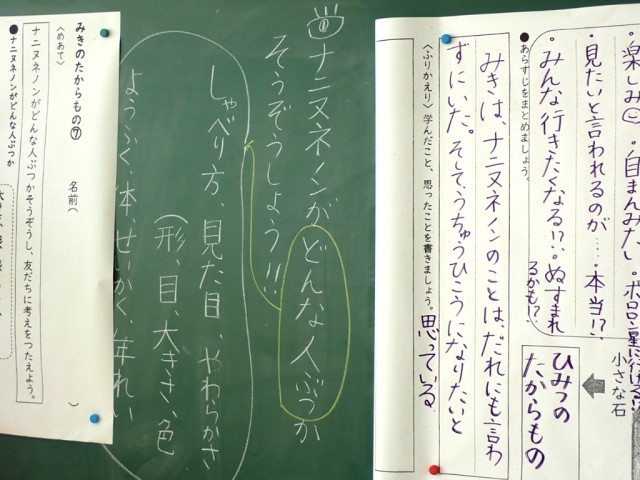 ・楽しみ ・自まんみたい
小さな石
・見たいと言われるのが……本当!?
・みんな行きたくなる!?・ぬすまれ
るかも!?
ひみつの
たからもの
●あらすじをまとめましょう。
みきは、ナニヌネノンのことは、だれにも言わ
ずにいた。そして、うちゅうひこうになりたいと
思っている
〈ふりかえり〉学んだこと、思ったことを書きましょう。
ナニヌネノンがどんな人ぶつか
そうぞうしよう!!
しゃべり方、見た目、やわらかさ
(形、目、大きさ、色
ようふく、体、せいかく、年れい
みきのたからもの⑦
名前(　)
〈めあて〉
ナニヌネノンがどんな人ぶつかそうぞうし、友だちに考えをつたえよう。
●ナニヌネノンがどんな人ぶつか